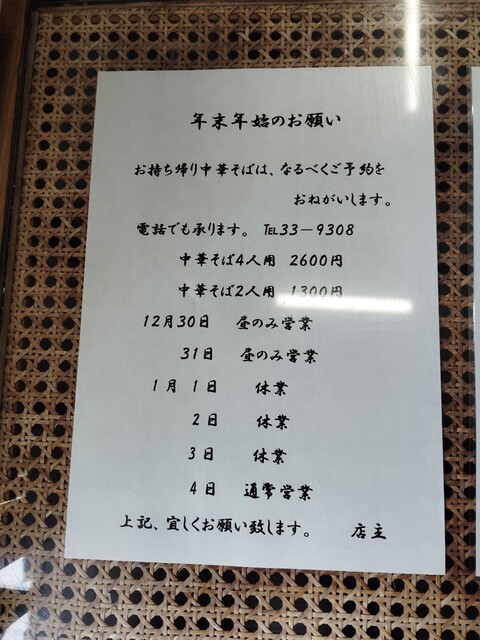 年末年始のお願い
お持ち帰り中華そばは、なるべくご予約を
おねがいします。
電話でも承ります。 ℡33－9308
中華そば4人用 2600円
中華そば2人用 1300円
12月30日 昼のみ営業
31日 昼のみ営業
1月 1日 休業
2日 休業
3日 休業
4日 通常営業
上記、宜しくお願い致します。 店主